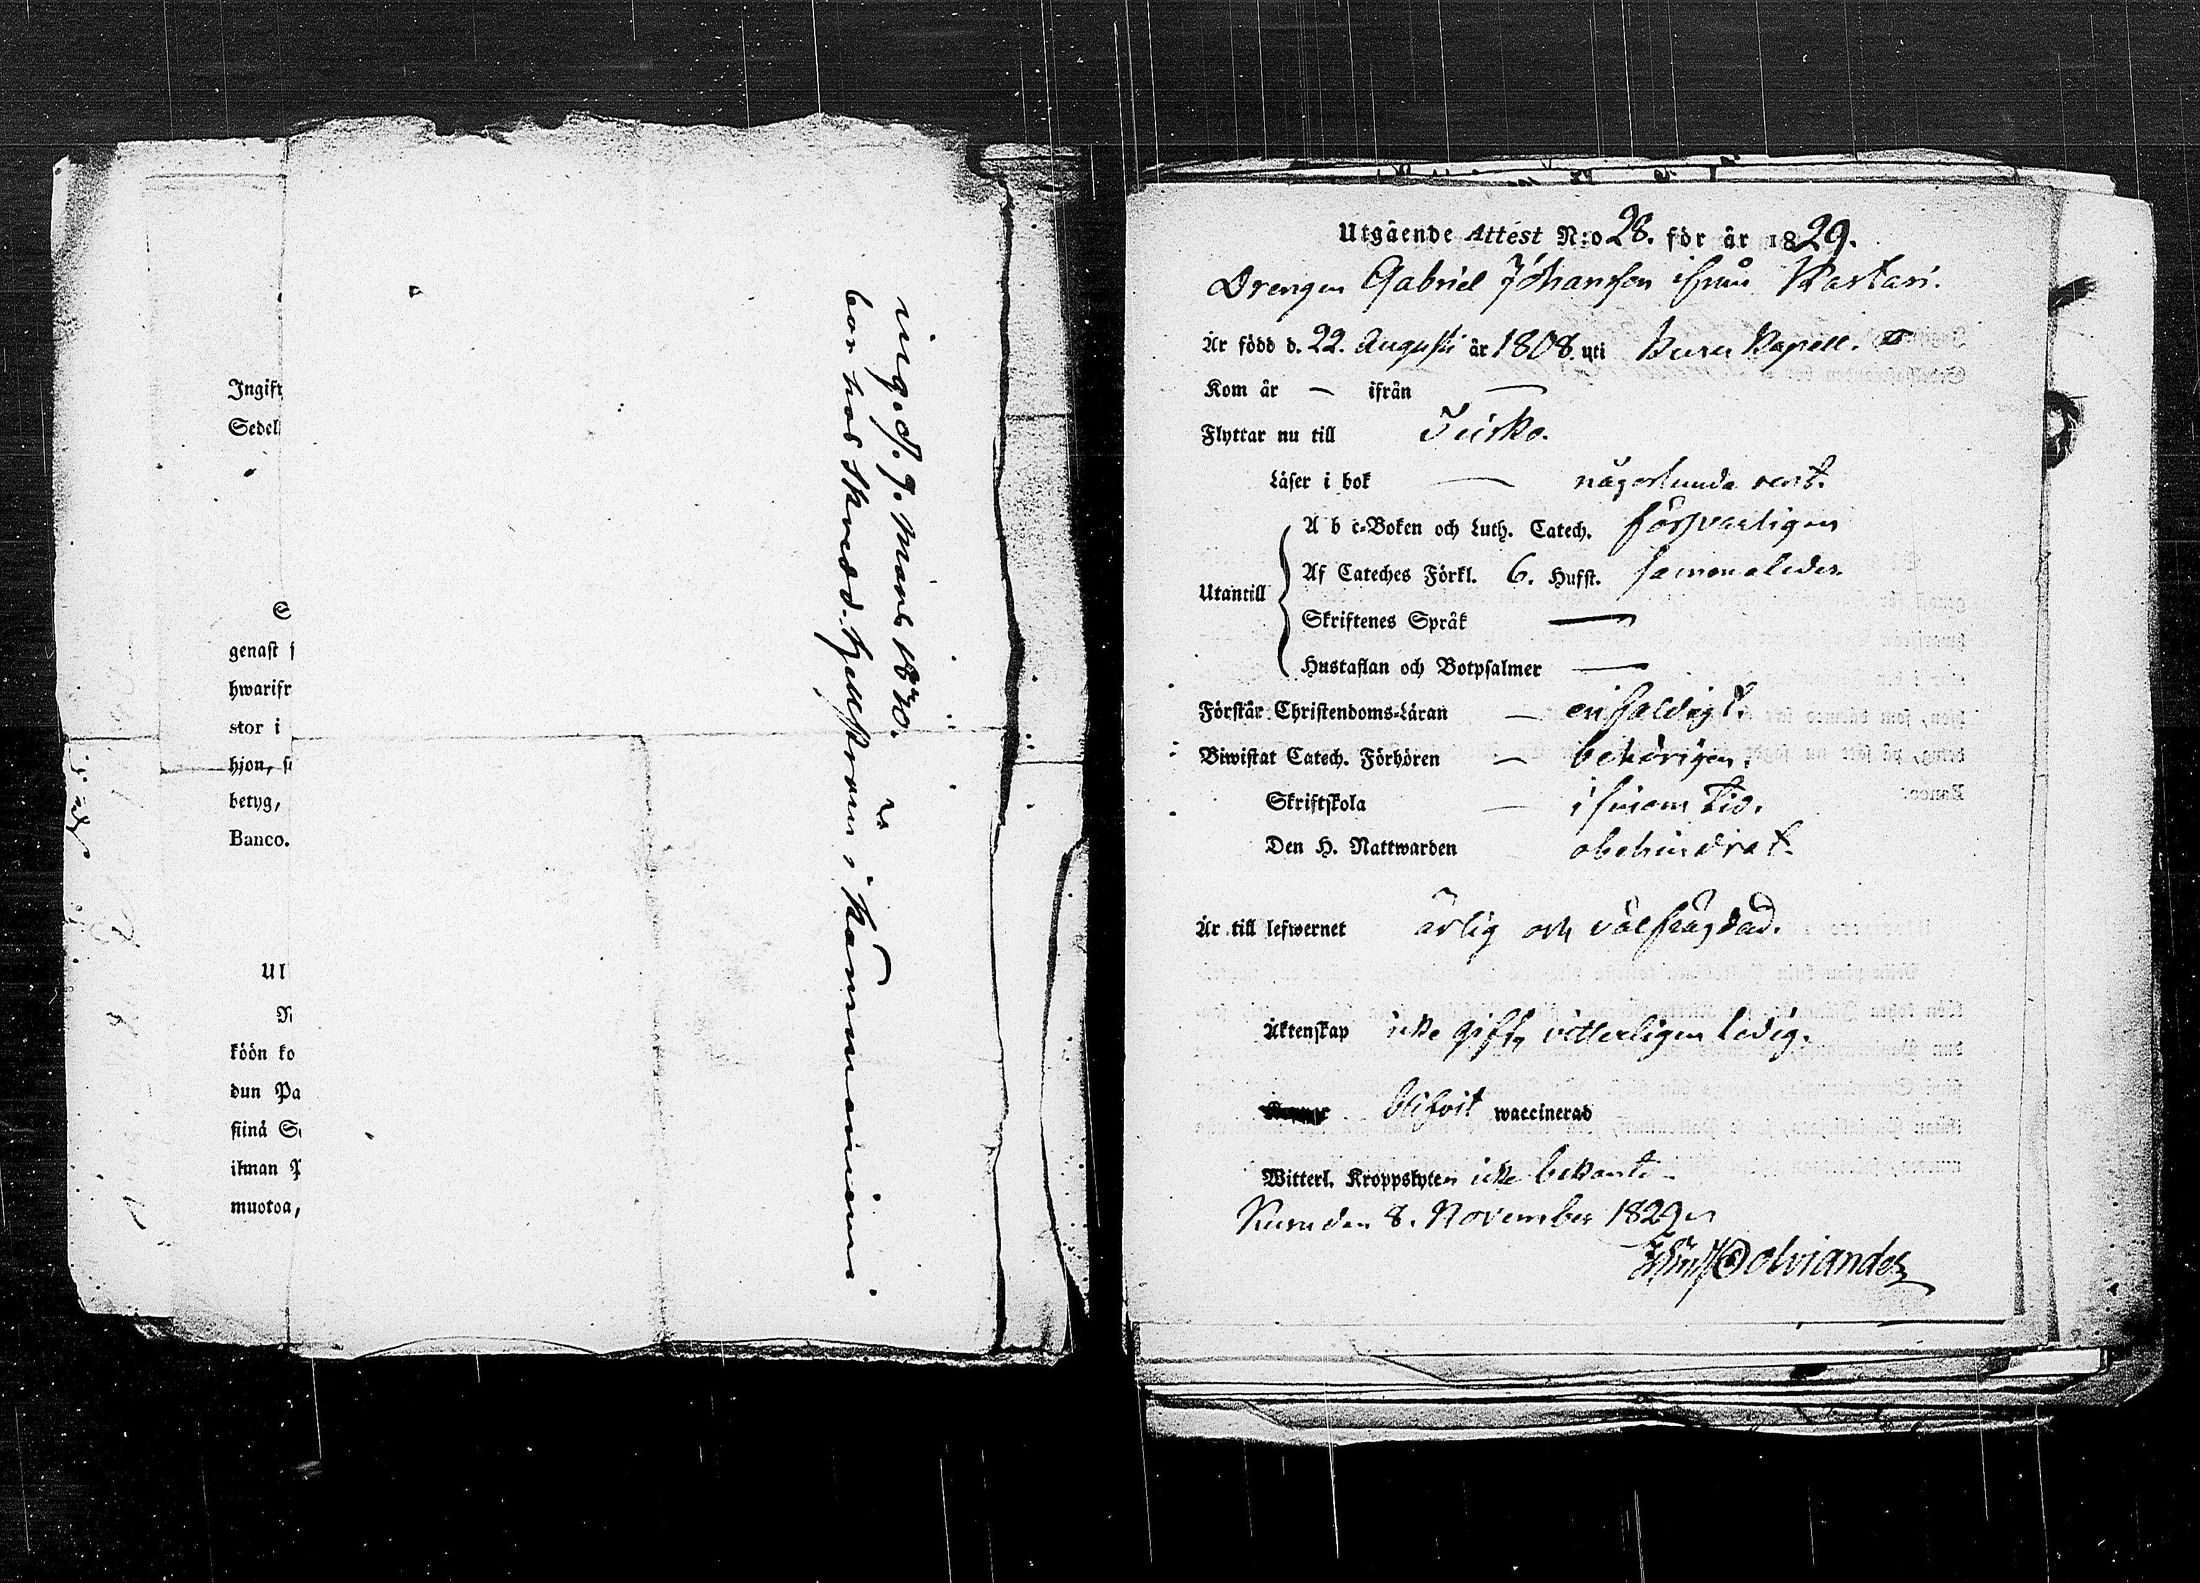 Ingift
Sedel
S
genast s
hwarifr
stor i
hjon, s
betyg,
Banco.
Ul
N
köön ko
dun Pa
siinä S
ilman P
muotoa,
ing. d. 9. Mars 1830.
bor hos Skredd. Hellstrom i Kämmäniemi.
Utgående Attest N:o 28. för år 1829.
Drengen Gabriel Johansson ifrån Kartari.
Är född d. 22. Augusti år 1808. uti Kuru Kapell.
Kom år — ifrån —
Flyttar nu till Teisko.
Läser i bok — någorlunda rent.
A b c-Boken och Luth. Catech. försvarligen
Utantill
Af Cateches Förkl. 6. Hufst. sammaledes
Skriftenes Språk —
Hustaflan och Botpsalmer —
Förstår Christendoms-Läran — enfaldigt.
Biwistat Catech. Förhören — behörigen.
Skriftskola — i sinom tid.
Den H. Nattwarden obehindrat.
Är till lefwernet ärlig och välfrägdad.
Äktenskap icke gift, vitterligen ledig.
blifvit waccinerad
Witterl. Kroppslyten icke bekante
Kuru den 8. November 1829
Dolviander